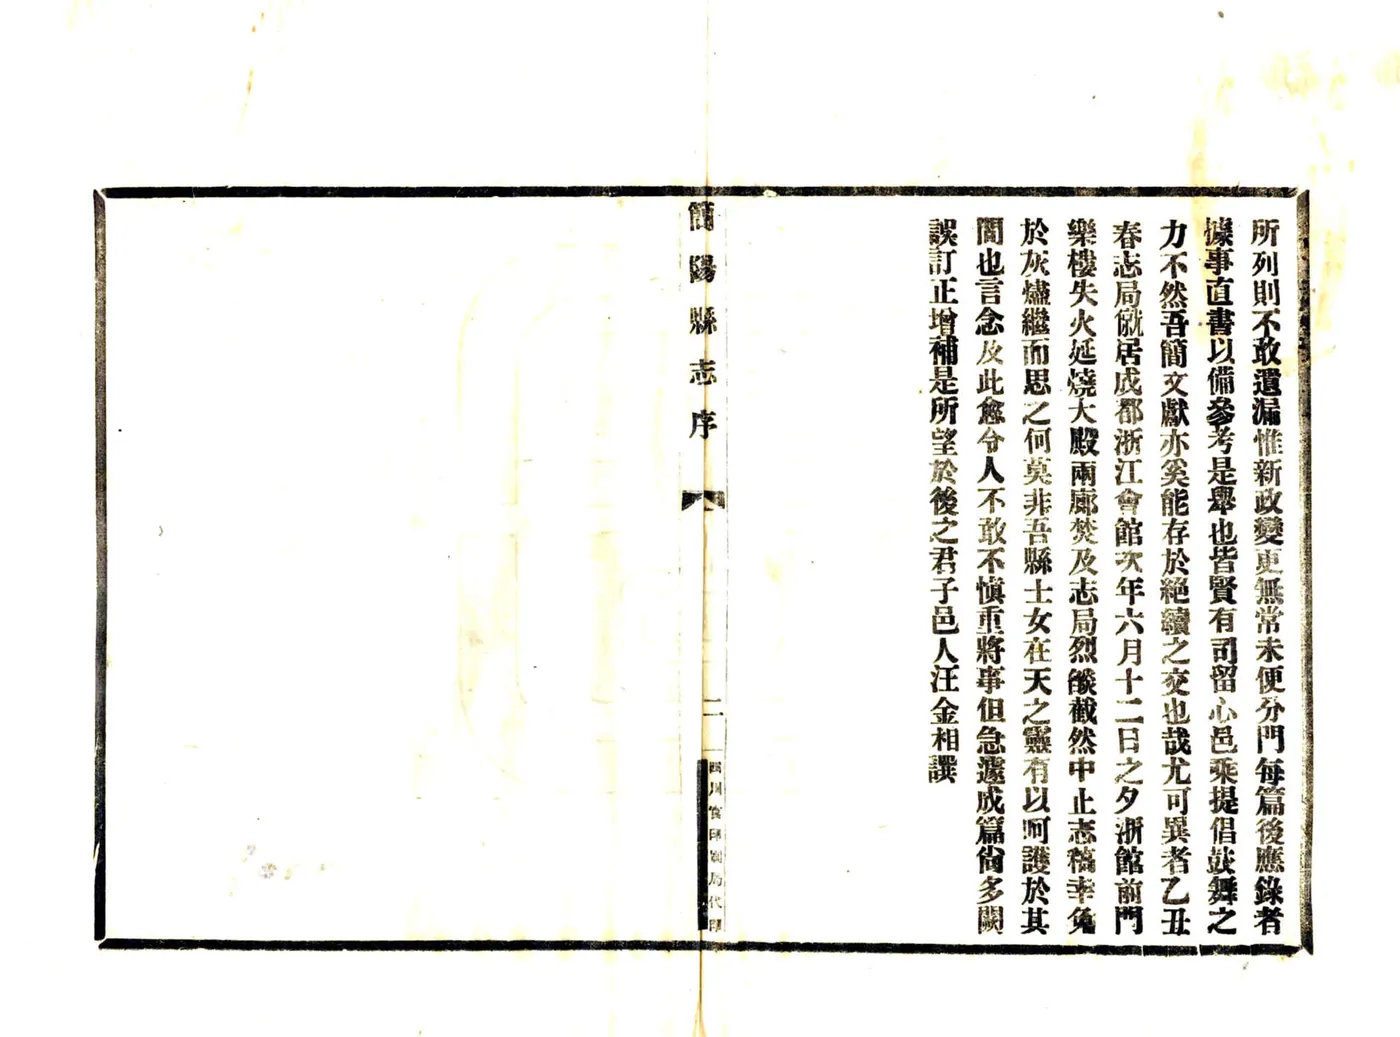 所列則不敢遺漏惟新政變更無常未便分門每篇後應錄者
據事直書以備參考是舉也皆賢有司留心邑乘提倡鼓舞之
力不然吾簡文獻亦奚能存於絶續之交也哉尤可異者乙丑
春志局僦居成都浙江會館次年六月十二日之夕浙館前門
樂樓失火延燒大殿兩廊焚及志局烈燄截然中止志稿幸免
於灰燼繼而思之何莫非吾縣士女在天之靈有以呵護於其
間也言念及此愈令人不敢不慎重將事但急遽成篇尙多闕
誤訂正增補是所望於後之君子邑人汪金相譔
簡陽縣志序
二
四川官印刷局代印